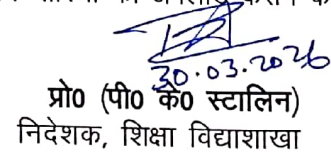 30.03.2026
प्रो0 (पी0 के0 स्टालिन)
निदेशक, शिक्षा विद्याशाखा